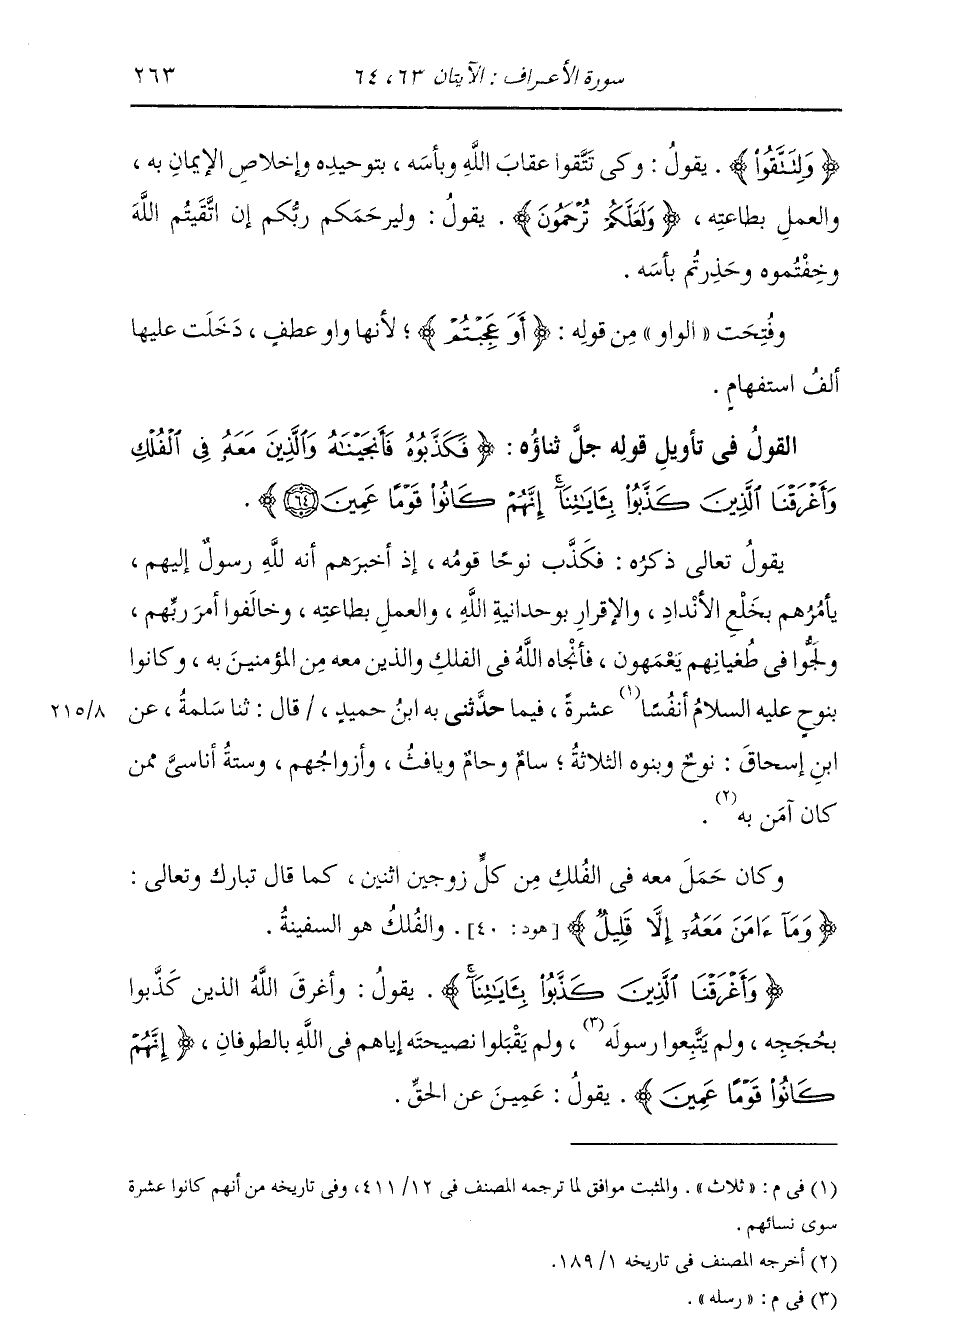 سورة الأعراف : الآيتان ٦٣ ، ٦٤ ٢٦٣
﴿ وَلِنَتَّقُواْ ﴾ . يقولُ : وكى تَتَّقوا عقابَ اللَّهِ وبأسَه ، بتوحيدِه وإخلاصِ الإيمانِ به ،
والعملِ بطاعتِه ، ﴿ وَلَعَلَّكُمْ تُرْحَمُونَ ﴾ . يقولُ : وليرحَمَكم ربُّكم إن اتَّقَيتُم اللَّهَ
وخِفْتُموه وحَذِرتُم بأسَه .
وفُتِحَت « الواو » مِن قولِه : ﴿ أَوَ عَجِبْتُمْ ﴾ ؛ لأنها واو عطفٍ ، دَخَلَت عليها
ألفُ استفهامٍ .
القولُ فى تأويلِ قولِه جلَّ ثناؤُه : ﴿ فَكَذَّبُوهُ فَأَنجَيْنَٰهُ وَٱلَّذِينَ مَعَهُۥ فِى ٱلْفُلْكِ
وَأَغْرَقْنَا ٱلَّذِينَ كَذَّبُواْ بِـَٔايَٰتِنَآ ۚ إِنَّهُمْ كَانُواْ قَوْمًا عَمِينَ ﴿٦٤﴾ ﴾ .
يقولُ تعالى ذكرُه : فكذَّب نوحًا قومُه ، إذ أخبرَهم أنه للَّهِ رسولٌ إليهم ،
يأمُرُهم بخَلْعِ الأنْدادِ ، والإقرارِ بوحدانيةِ اللَّهِ ، والعملِ بطاعتِه ، وخالَفوا أمرَ ربِّهم ،
ولَجُّوا فى طُغيانِهم يَعْمَهون ، فأنْجاه اللَّهُ فى الفلكِ والذين معه مِن المؤمنينَ به ، وكانوا
بنوحٍ عليه السلامُ أنفُسًا(١) عشرةً ، فيما حدَّثنى به ابنُ حميدٍ ، / قال : ثنا سَلمةُ ، عن ٢١٥/٨
ابنِ إسحاقَ : نوحٌ وبنوه الثلاثةُ ؛ سامٌ وحامٌ ويافثُ ، وأزواجُهم ، وستةُ أناسىَّ ممن
كان آمَن به(٢) .
وكان حَمَلَ معه فى الفُلكِ مِن كلٍّ زوجين اثنين ، كما قال تبارك وتعالى :
﴿ وَمَآ ءَامَنَ مَعَهُۥٓ إِلَّا قَلِيلٌ ﴾ [هود: ٤٠] . والفُلكُ هو السفينةُ .
﴿ وَأَغْرَقْنَا ٱلَّذِينَ كَذَّبُواْ بِـَٔايَٰتِنَآ ۚ ﴾ . يقولُ : وأغرقَ اللَّهُ الذين كَذَّبوا
بحُجَجِه ، ولم يَتَّبِعوا رسولَه(٣) ، ولم يَقْبَلوا نصيحتَه إياهم فى اللَّهِ بالطوفانِ ، ﴿ إِنَّهُمْ
كَانُواْ قَوْمًا عَمِينَ ﴾ . يقولُ : عَمِينَ عن الحقِّ .
(١) فى م : « ثلاث » . والمثبت موافق لما ترجمه المصنف فى ١٢/ ٤١١، وفى تاريخه من أنهم كانوا عشرة
سوى نسائهم .
(٢) أخرجه المصنف فى تاريخه ١/ ١٨٩.
(٣) فى م : « رسله » .